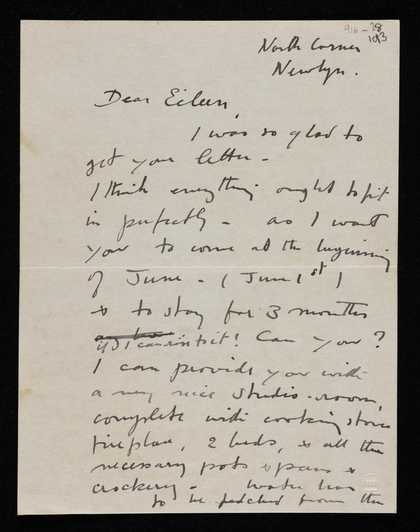 North Corner
Newlyn.
Dear Eileen,
I was so glad to
get your letter -
I think everything ought to fit
in perfectly - as I want
you to come at the beginning
of June - (June 1st)
& to stay for 3 months
if I can insist! Can you?
I can provide you with
a very nice studio-room,
complete with cooking stove
fireplace, 2 beds, & all the
necessary pots & pans &
crockery - water has
to be fetched from the